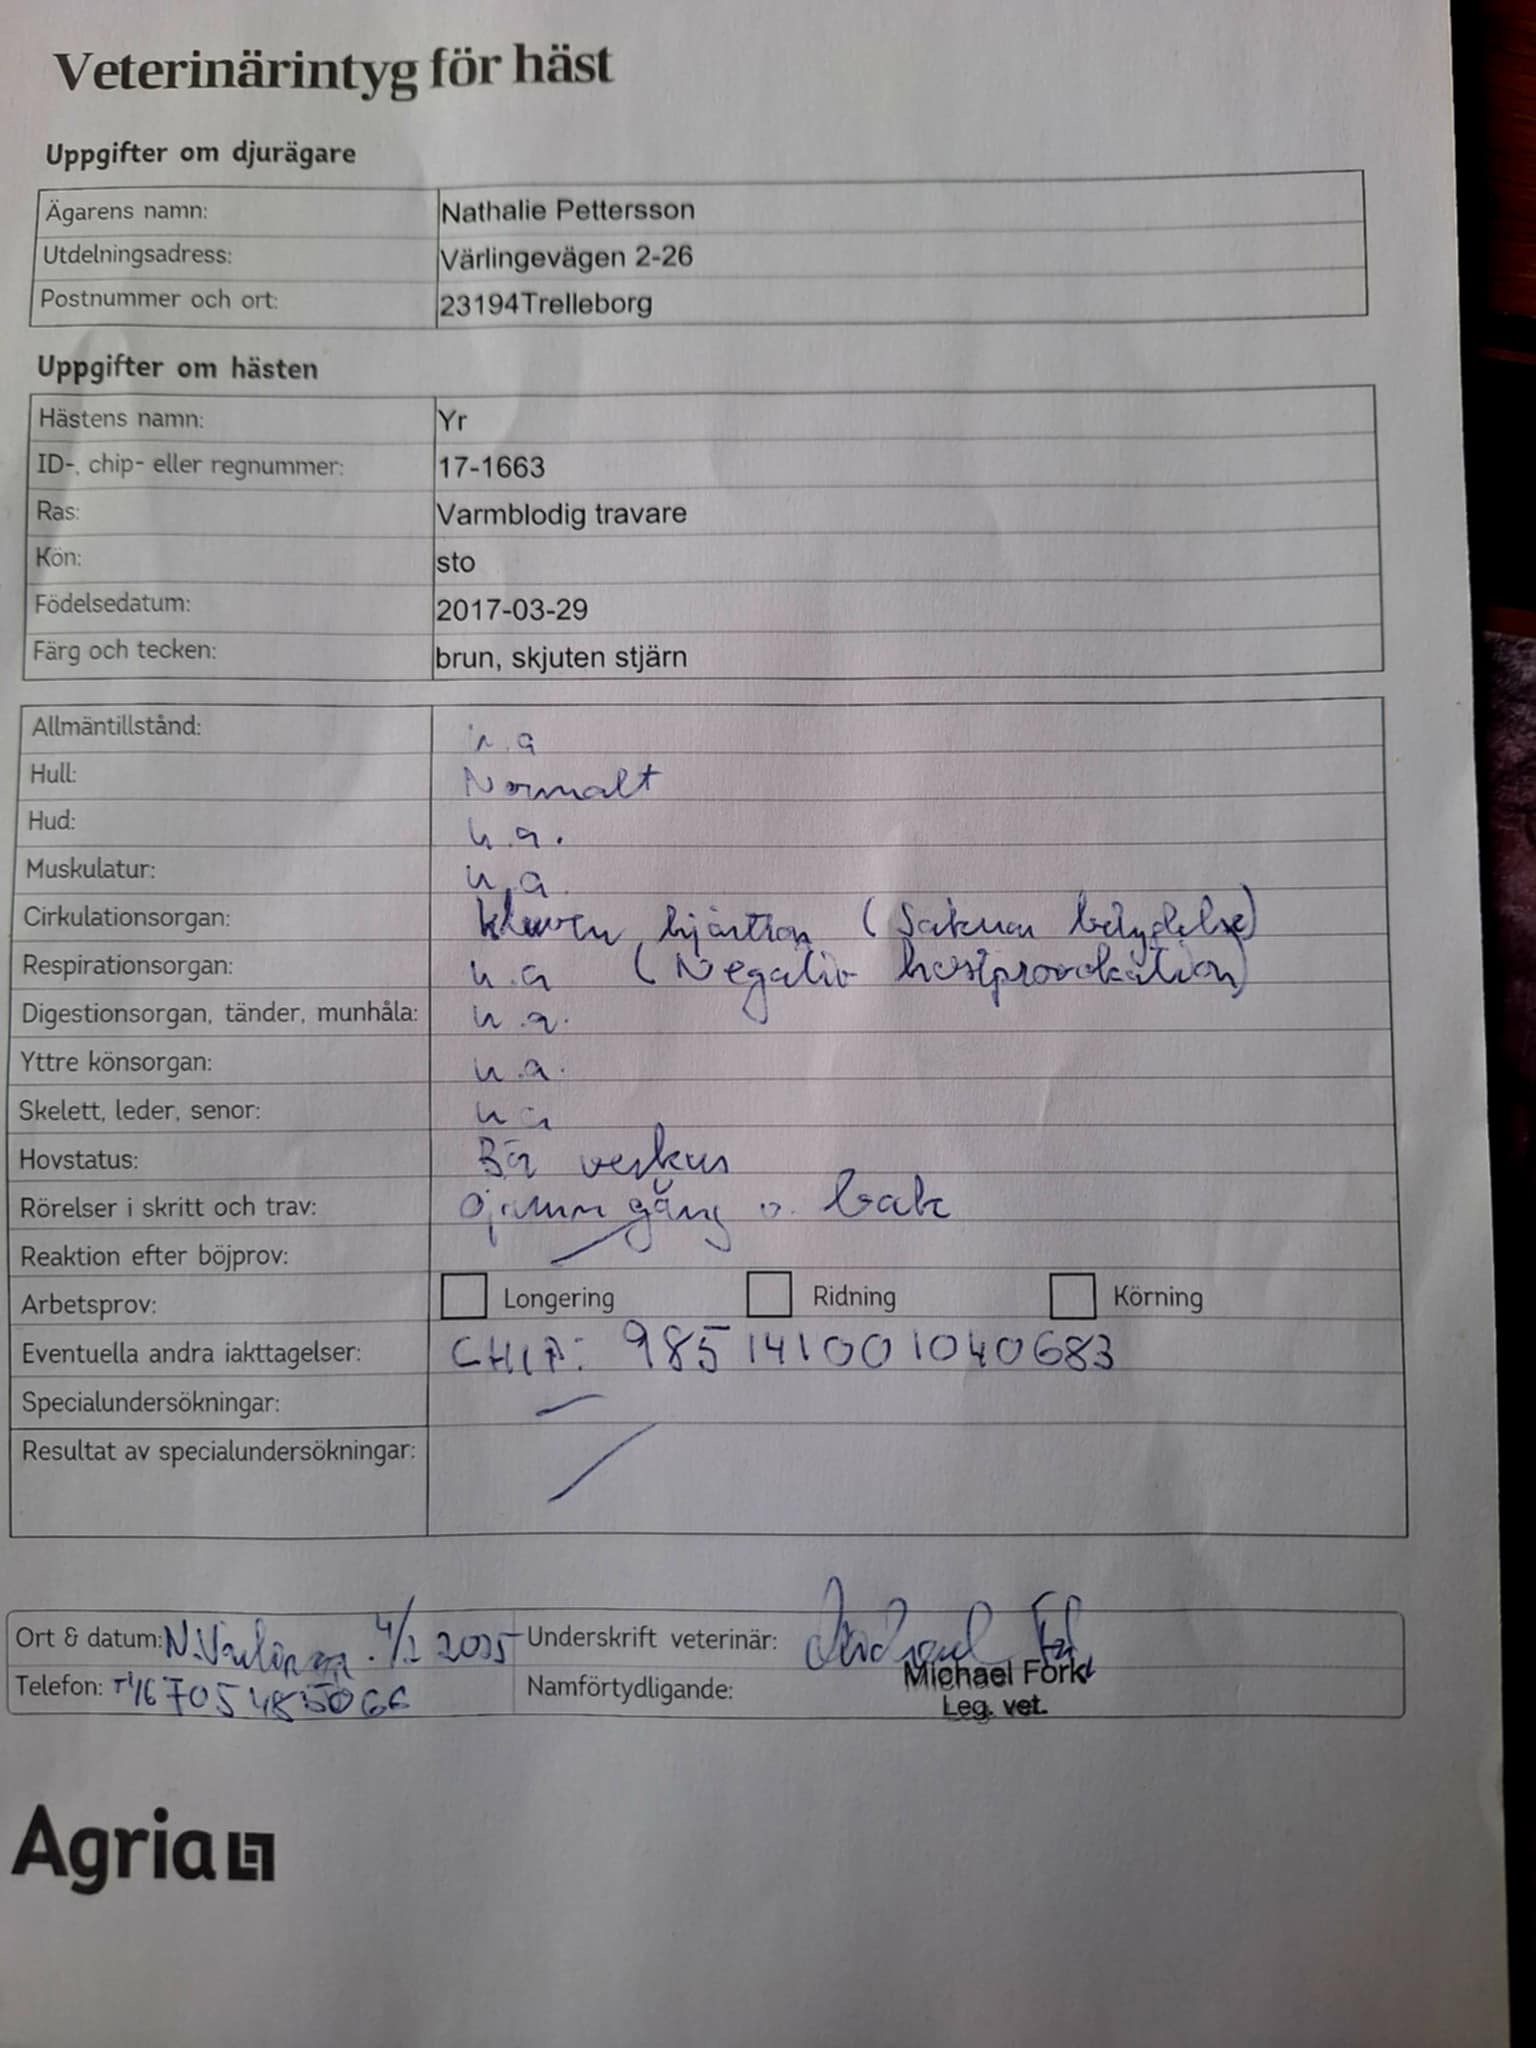 Veterinärintyg för häst
Uppgifter om djurägare
Ägarens namn: Nathalie Pettersson
Utdelningsadress: Värlingevägen 2-26
Postnummer och ort: 23194Trelleborg
Uppgifter om hästen
Hästens namn: Yr
ID-, chip- eller regnummer: 17-1663
Ras: Varmblodig travare
Kön: sto
Födelsedatum: 2017-03-29
Färg och tecken: brun, skjuten stjärn
Allmäntillstånd: n.a
Hull: Normalt
Hud: u.a.
Muskulatur: u.a.
Cirkulationsorgan: kluven hjärtton (Saknar betydelse)
Respirationsorgan: u.a (Negativ hostprovokation)
Digestionsorgan, tänder, munhåla: u.a.
Yttre könsorgan: u.a.
Skelett, leder, senor: u a
Hovstatus: Bra verkad
Rörelser i skritt och trav: Ojämn gång v. bak
Reaktion efter böjprov:
Arbetsprov: Longering Ridning Körning
Eventuella andra iakttagelser: CHIP: 985141001040683
Specialundersökningar: –
Resultat av specialundersökningar:
Ort & datum: 2025 Underskrift veterinär:
Telefon: Namförtydligande: Michael Fork
Leg. vet.
Agria